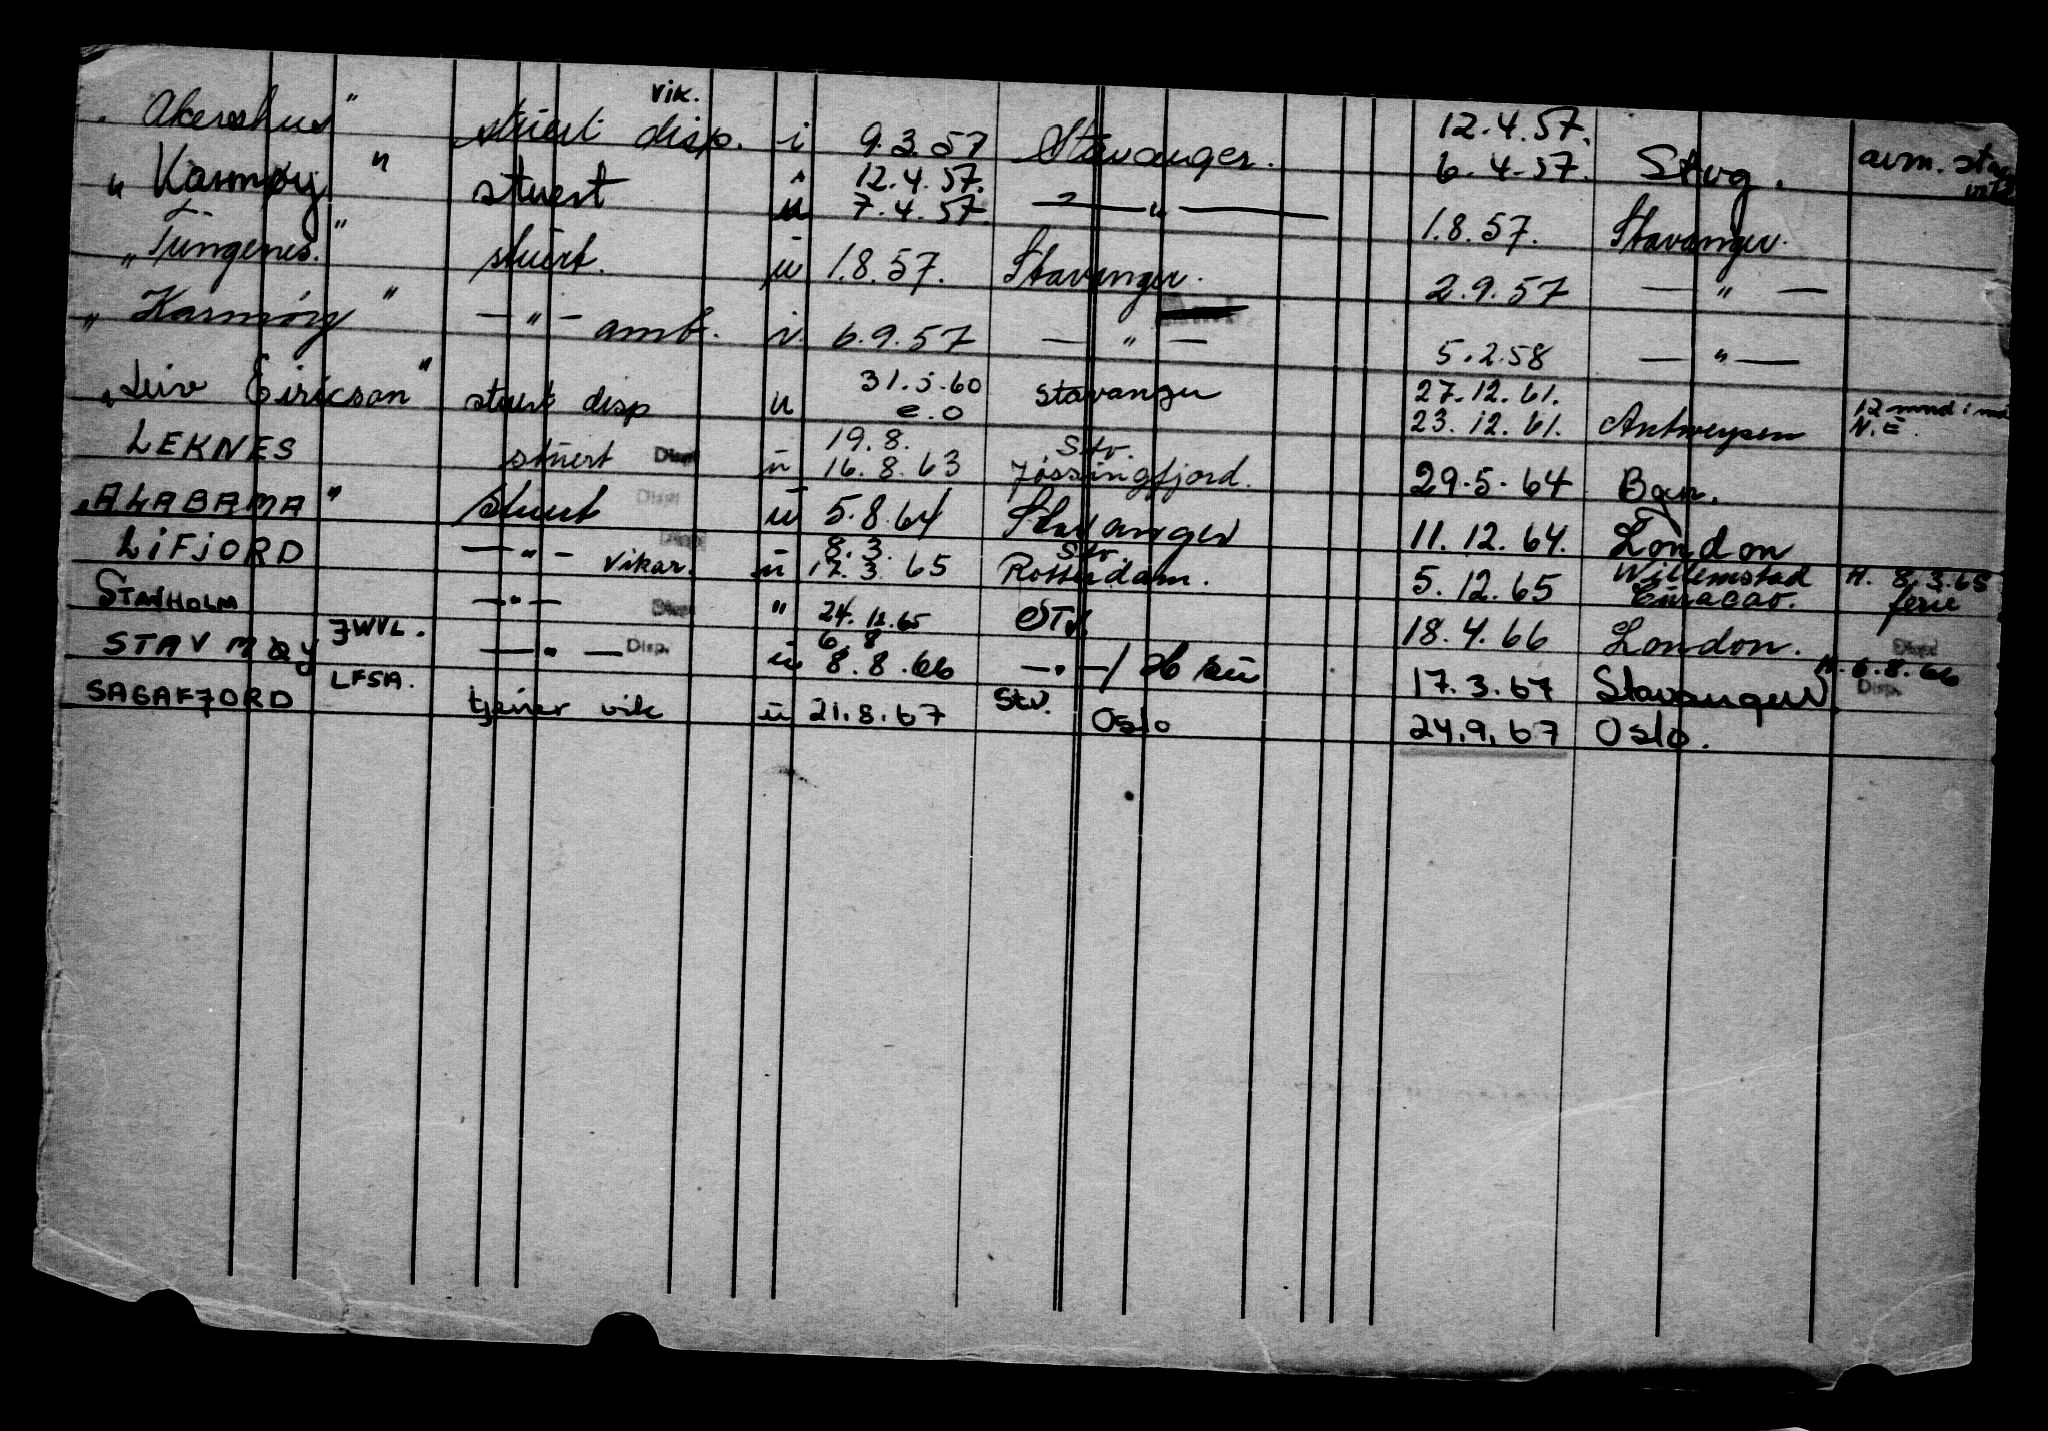 vik.
" Akershus " stuert disp. i 9.3.57 Stavanger. 12.4.57. 6.4.57. Stvg. avm.
" Karmøy " stuert u 12.4.57. 7.4.57. — " — 1.8.57. Stavanger.
" Tungenes. " stuert. u 1.8.57. Stavanger. 2.9.57 — " —
" Karmøy " — " — amb. u. 6.9.57 — " — 5.2.58 — " —
" Leiv Eiricson " stuert disp u 31.5.60 e.o Stavanger 27.12.61. 23.12.61. Antwerpen 12 mnd i
N.E.
LEKNES stuert Disp. u 19.8. 16.8.63 Stv. Jøssingfjord. 29.5.64 Bgn.
" ALABAMA " stuert Disp. u 5.8.64 Stavanger 11.12.64. London
LIFJORD — " — vikar. Disp. u 8.3. 17.3.65 Stv. Rotterdam. 5.12.65 Willemstad Curacao. H. 8.3.65 ferie
STAVHOLM — " — Disp. " 24.12.65 STV. 18.4.66 London. Disp.
STAVMØY JWVL. — " — Disp. u 6.8 8.8.66 — " — / 17.3.67 Stavanger H. 6.8.66 Disp.
SAGAFJORD LFSA. tjener vik u 21.8.67 Stv. Oslo 24.9.67 Oslo.